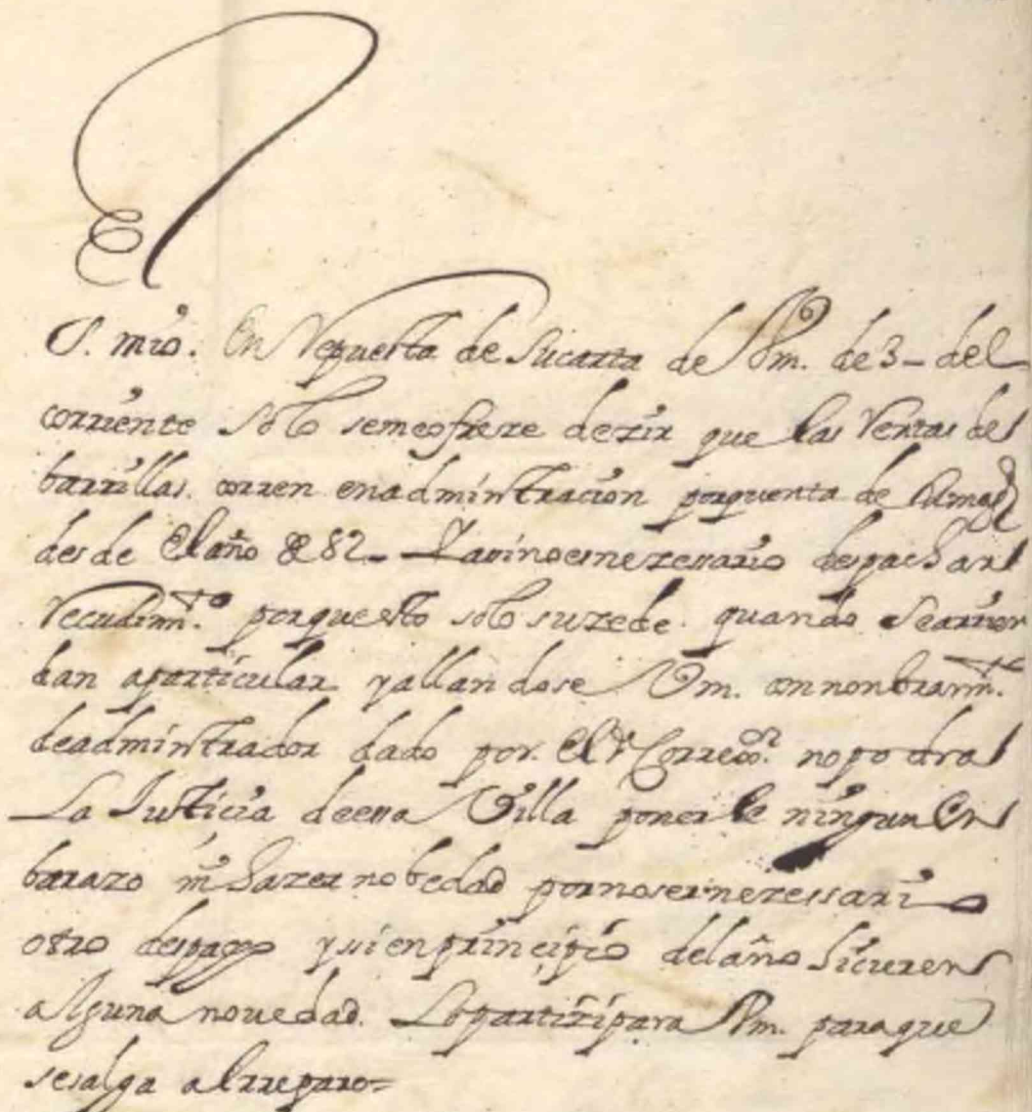 S. mio. En Repuesta de Sucarta de Vm. de 3 - del
corriente solo semeofreze dezir que las Rentas del
barrillas. corren enadminstracion porquenta de Su Magd
desde El año de 82 - Y asinoesnezesario despachar
Recudimto. porque esto solo suzede. quando Searrien
dan aparticular. yallandose Vm. connonbramto.
deadminstrador dado por. El Sr Corregor. nopodra
La Justicia deesa Villa ponerle ningun En
barazo ni hazer nobedad pornosernezessario
otro despacho ysienprincipio delaño hicieren
alguna novedad. Lopartizipara Vm. paraque
sesalga alrreparo=